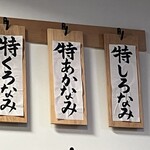 特しろなみ
特あかなみ
特くろなみ